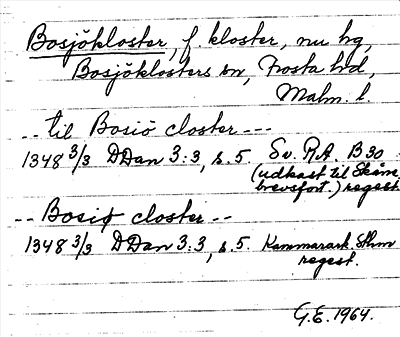 Bosjökloster, f. kloster, nu hg,
Bosjöklosters sn, Frosta hd,
Malm. l.
-- til Bosiö closter ---
1348 3/3 DDan 3:3, s. 5. Sv. R.A. B30
(udkast til Skåns
brevsfort.) regest
-- Bosiø closter --
1348 3/3 DDan 3:3, s. 5. Kammarark. Sthm
regest.
G.E. 1964.